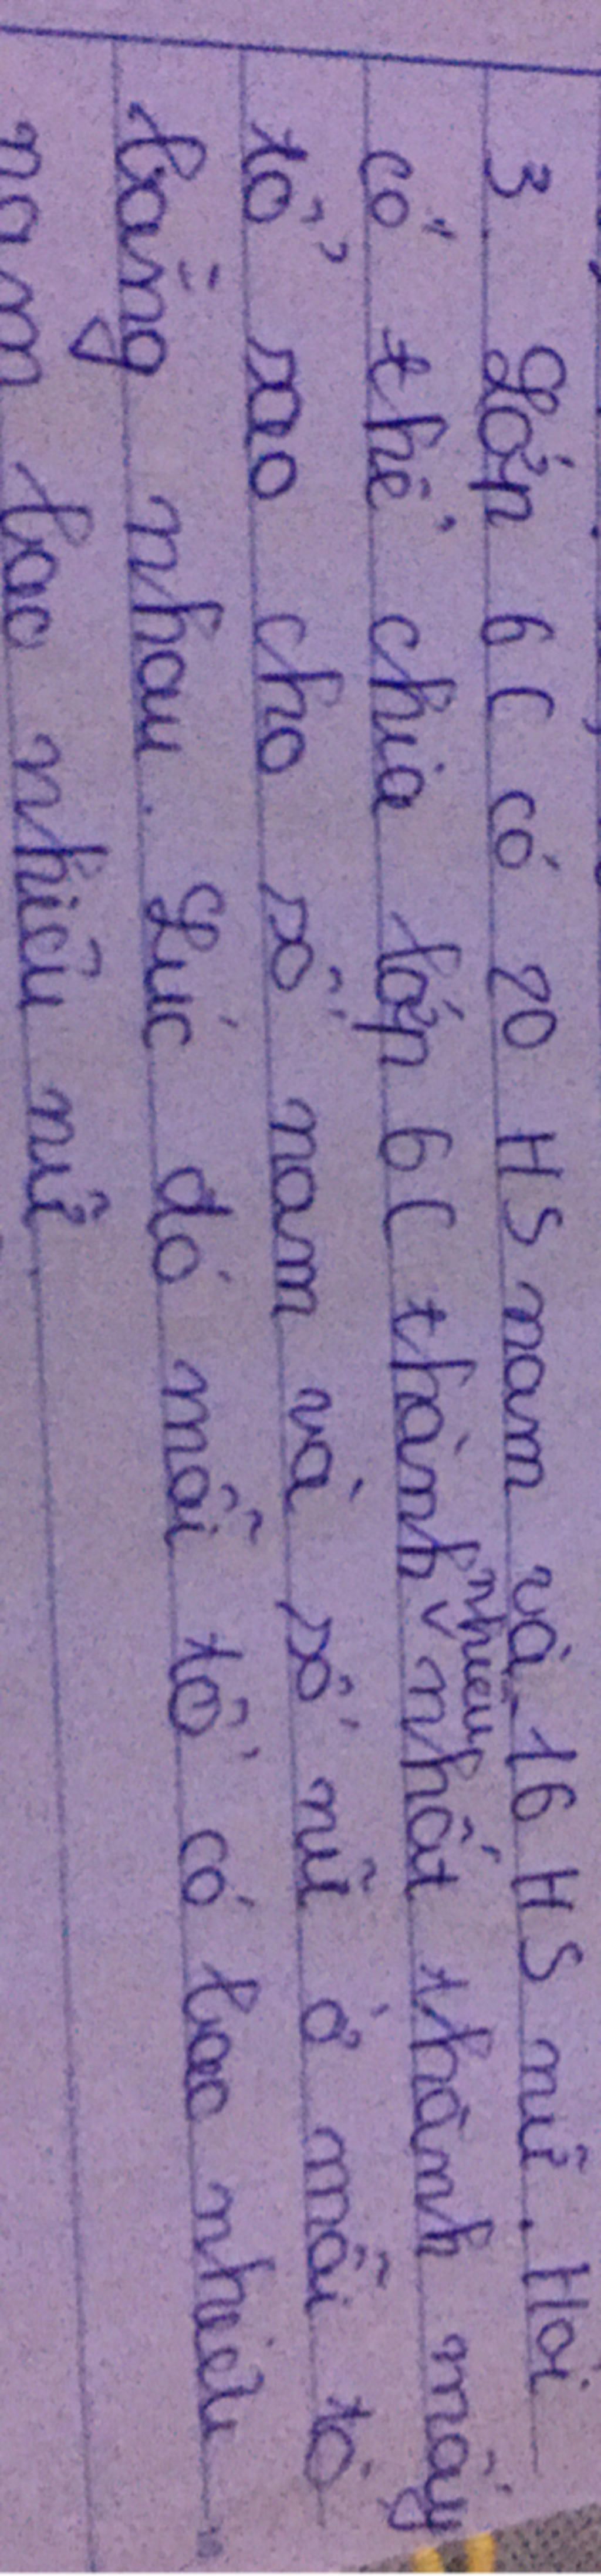 3. Lớp 6C có 20 HS nam và 16 HS nữ. Hỏi
có thể chia lớp 6C thành nhiều nhất thành mấy
tổ sao cho số nam và số nữ ở mỗi tổ
bằng nhau. Lúc đó mỗi tổ có bao nhiêu
nam bao nhiêu nữ.